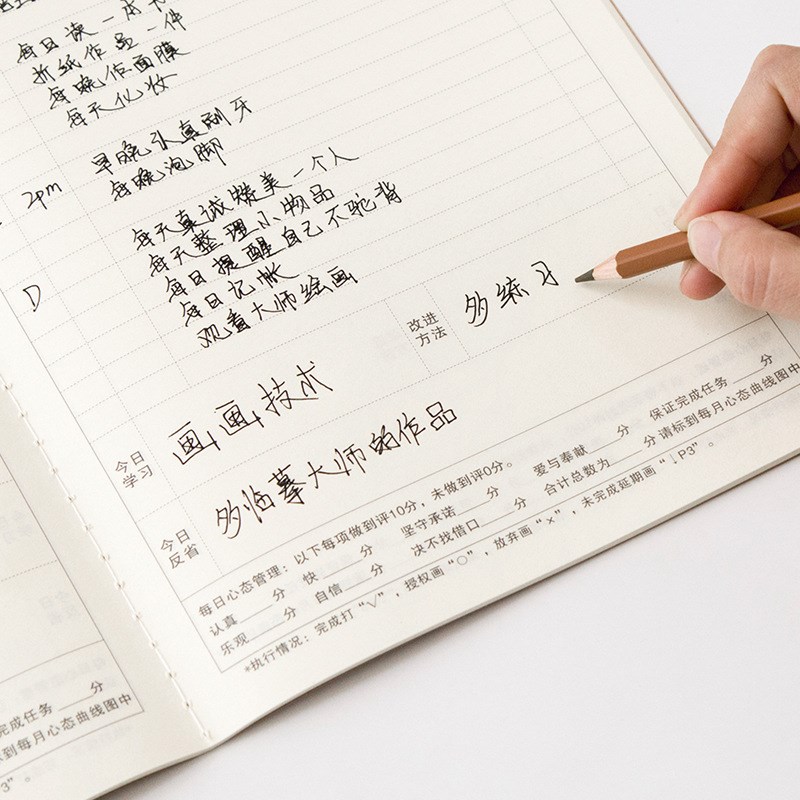 每日读一本书
折纸作品一件
每晚作面膜
每天化妆
早晚认真刷牙
2pm 每晚泡脚
每天真诚赞美一个人
每天整理小物品
每日提醒自己不驼背
D 每日记帐
观看大师绘画
改进方法 多练习
今日学习 画画技术
今日反省 多临摹大师的作品
每日心态管理：以下每项做到评10分，未做到评0分。
认真____分 快____分 坚守承诺____分 爱与奉献____分 保证完成任务____分
乐观____分 自信____分 决不找借口____分 合计总数为____分 请标到每月心态曲线图中
*执行情况：完成打“√”，授权画“○”，放弃画“×”，未完成延期画“↓P3”。
完成任务____分
标到每月心态曲线图中
3”。